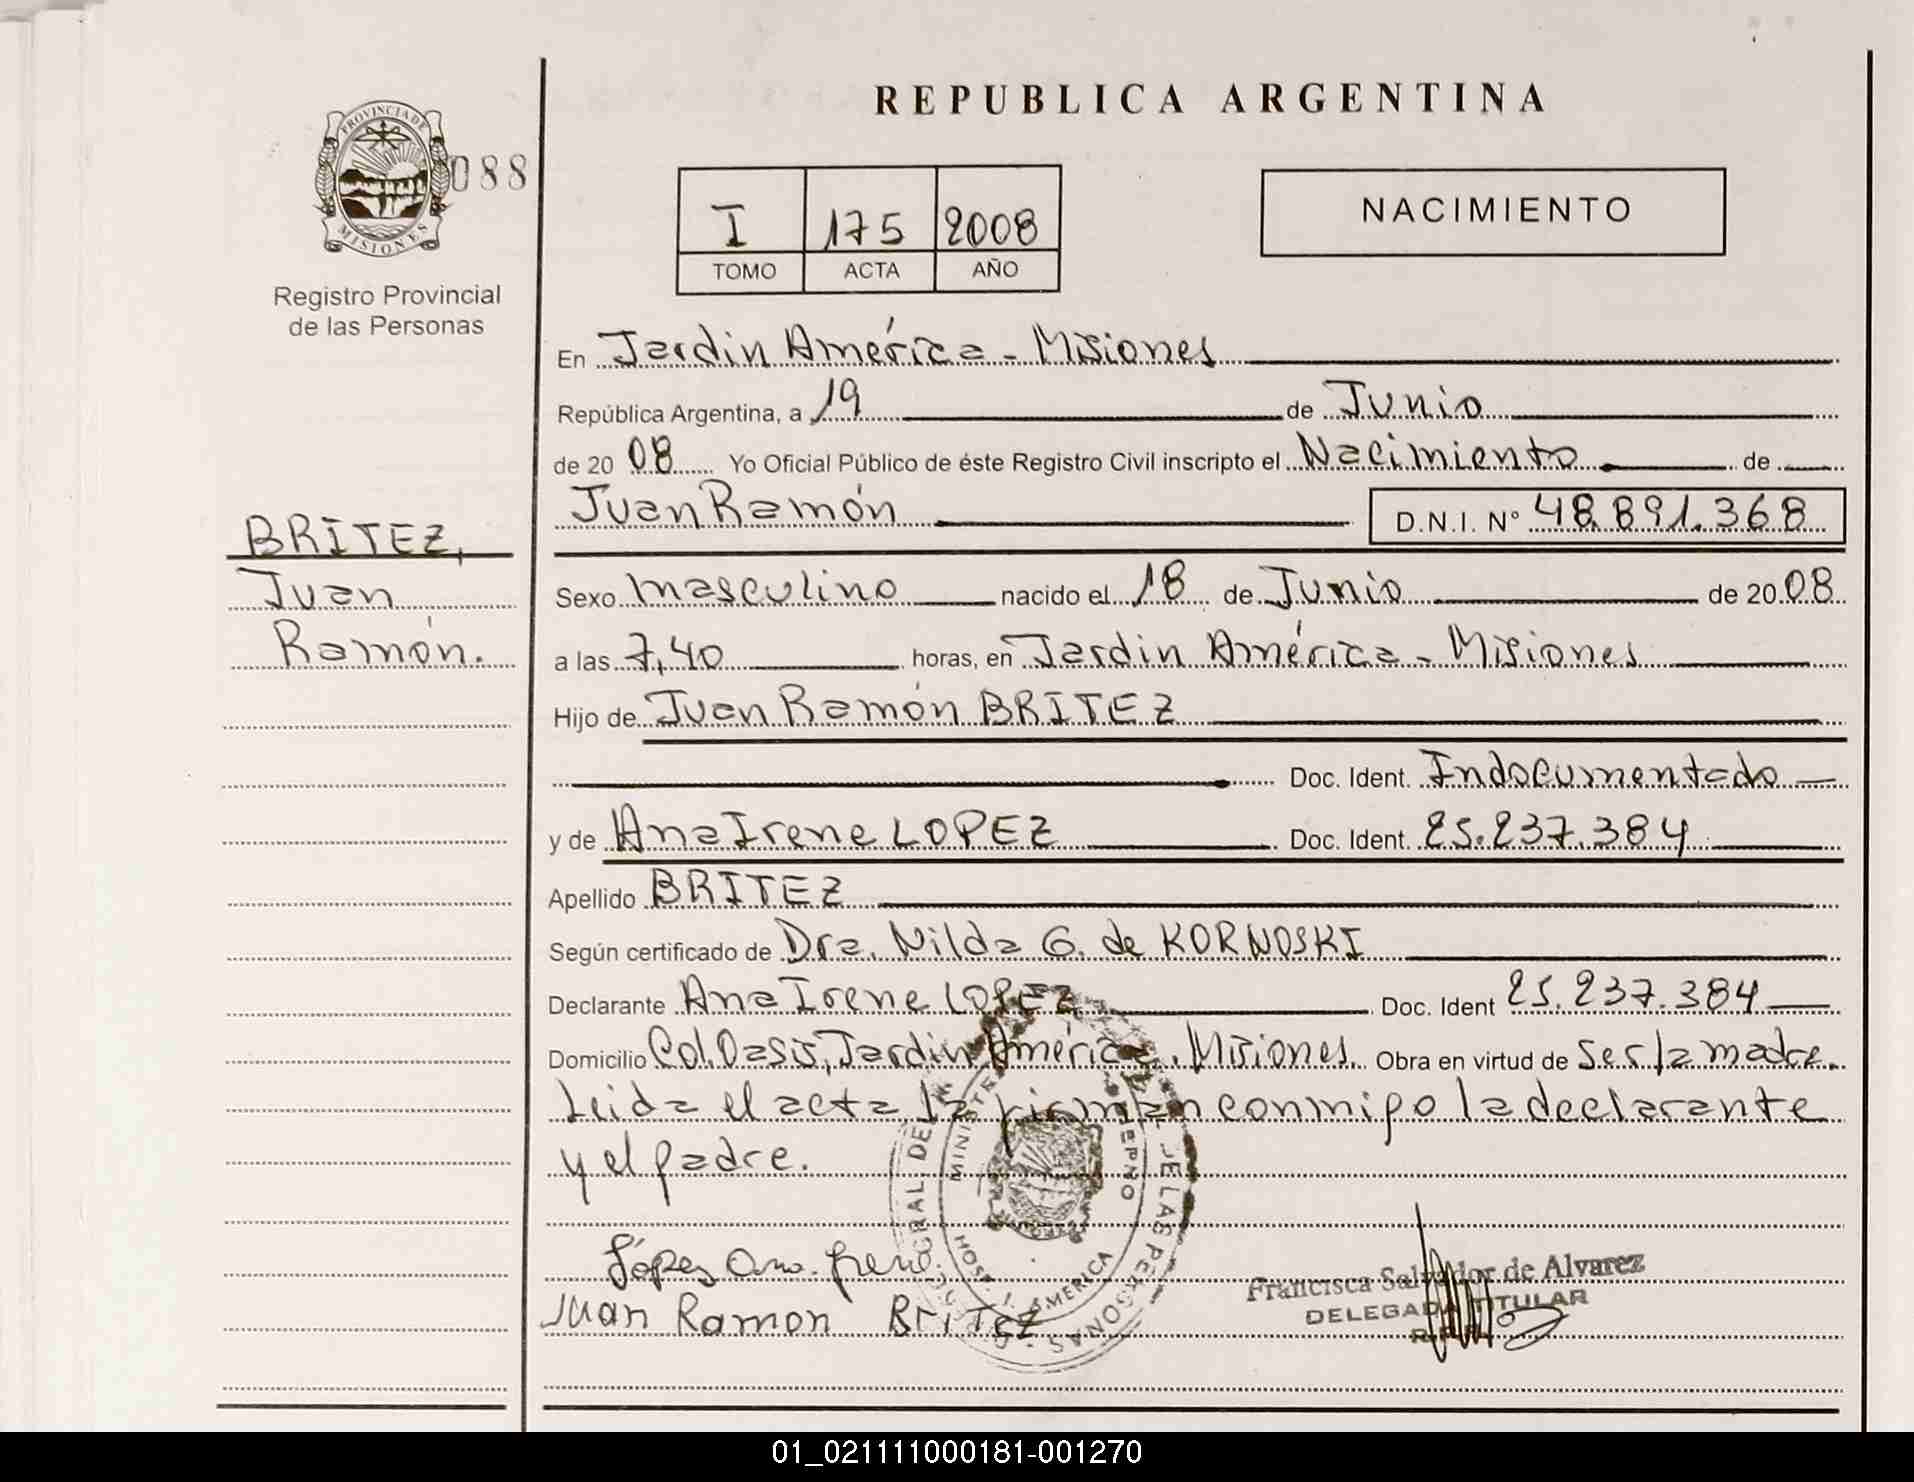 REPUBLICA ARGENTINA
PROVINCIA DE
MISIONES
088
Registro Provincial
de las Personas
I 175 2008
TOMO ACTA AÑO
NACIMIENTO
En Jardin América - Misiones
República Argentina, a 19 de Junio
de 20 08 Yo Oficial Público de éste Registro Civil inscripto el Nacimiento de
Juan Ramón D.N.I. Nº 48.891.368
BRITEZ,
Juan
Ramón.
Sexo masculino nacido el 18 de Junio de 20 08
a las 7,40 horas, en Jardin América - Misiones
Hijo de Juan Ramón BRITEZ
Doc. Ident. Indocumentado
y de Ana Irene LOPEZ Doc. Ident. 25.237.384
Apellido BRITEZ
Según certificado de Dra. Nilda G. de KORNOSKI
Declarante Ana Irene LOPEZ Doc. Ident 25.237.384
Domicilio Col. Oasis, Jardin América. Misiones. Obra en virtud de ser la madre.
Leida el acta la firman conmigo la declarante
y el padre.
López Ana Irene
Juan Ramon BriTeZ
Francisca Salvador de Alvarez
DELEGADA TITULAR
DE LAS PERSONAS
HOSP. J. AMERICA
01_021111000181-001270